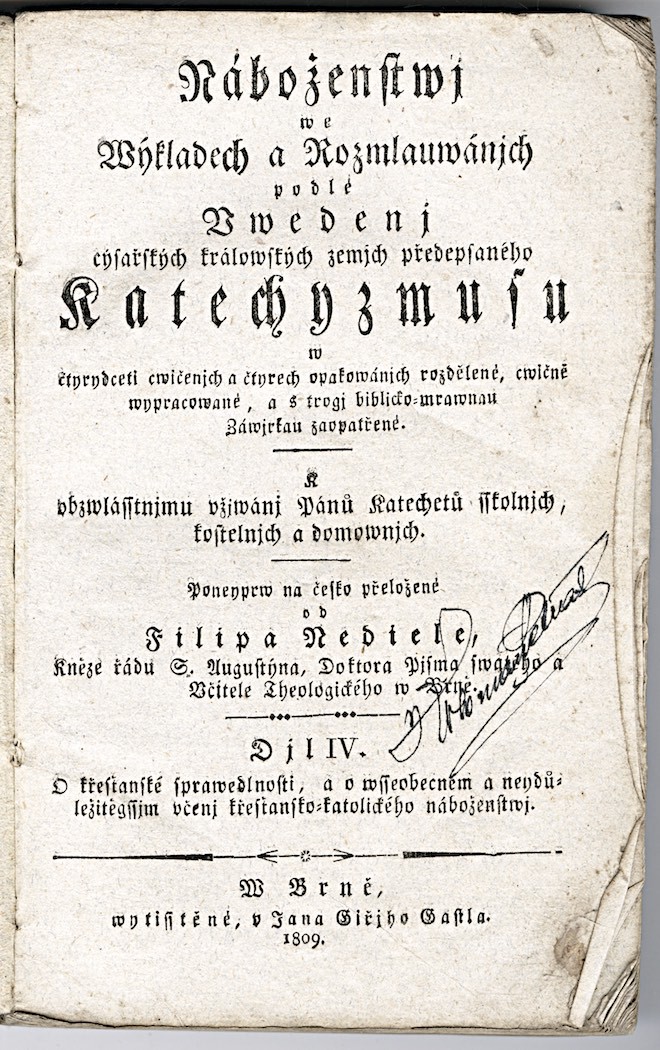 Náboženstwj
we
Wýkladech a Rozmlauwánjch
podlé
Vwedenj
cýsařských králowských zemjch předepsaného
Katechyzmusu
w
čtyrydceti cwičenjch a čtyrech opakowánjch rozdělené, cwičně
wypracowané, a s trogj biblicko-mrawnau
Záwjrkau zaopatřené.
K
obzwlásstnjmu vžjwánj Pánů Katechetů sskolnjch,
kostelnjch a domownjch.
Poneyprw na česko přeložené
od
Filipa Nediele,
Kněze řádu S. Augustýna, Doktora Pjsma swatého a
Včitele Theologického w Brně.
Djl IV.
O křesťanské sprawedlnosti, a o wsseobecném a neydů-
ležitěgssjm včenj křesťansko-katolického náboženstwj.
W Brně,
wytisstěné, v Jana Giřjho Gastla.
1809.